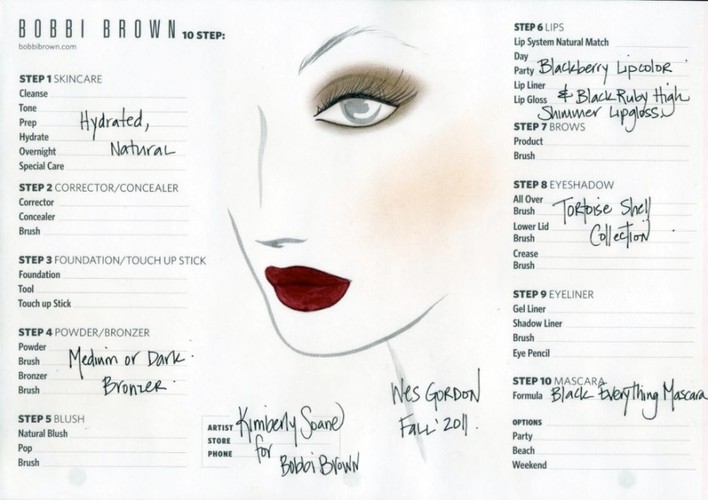 BOBBI BROWN 10 STEP:
bobbibrown.com
STEP 1 SKINCARE
Cleanse
Tone
Prep
Hydrate
Overnight
Special Care
Hydrated,
Natural
STEP 2 CORRECTOR/CONCEALER
Corrector
Concealer
Brush
STEP 3 FOUNDATION/TOUCH UP STICK
Foundation
Tool
Touch up Stick
STEP 4 POWDER/BRONZER
Powder
Brush
Bronzer
Brush
Medium or Dark
Bronzer
STEP 5 BLUSH
Natural Blush
Pop
Brush
ARTIST Kimberly Soane
STORE for
PHONE Bobbi Brown
Wes Gordon
Fall 2011.
STEP 6 LIPS
Lip System Natural Match
Day
Party Blackberry Lipcolor
Lip Liner
Lip Gloss & Black Ruby High
Shimmer Lipgloss
STEP 7 BROWS
Product
Brush
STEP 8 EYESHADOW
All Over
Brush Tortoise Shell
Lower Lid
Brush Collection
Crease
Brush
STEP 9 EYELINER
Gel Liner
Shadow Liner
Brush
Eye Pencil
STEP 10 MASCARA
Formula Black Everything Mascara
OPTIONS
Party
Beach
Weekend